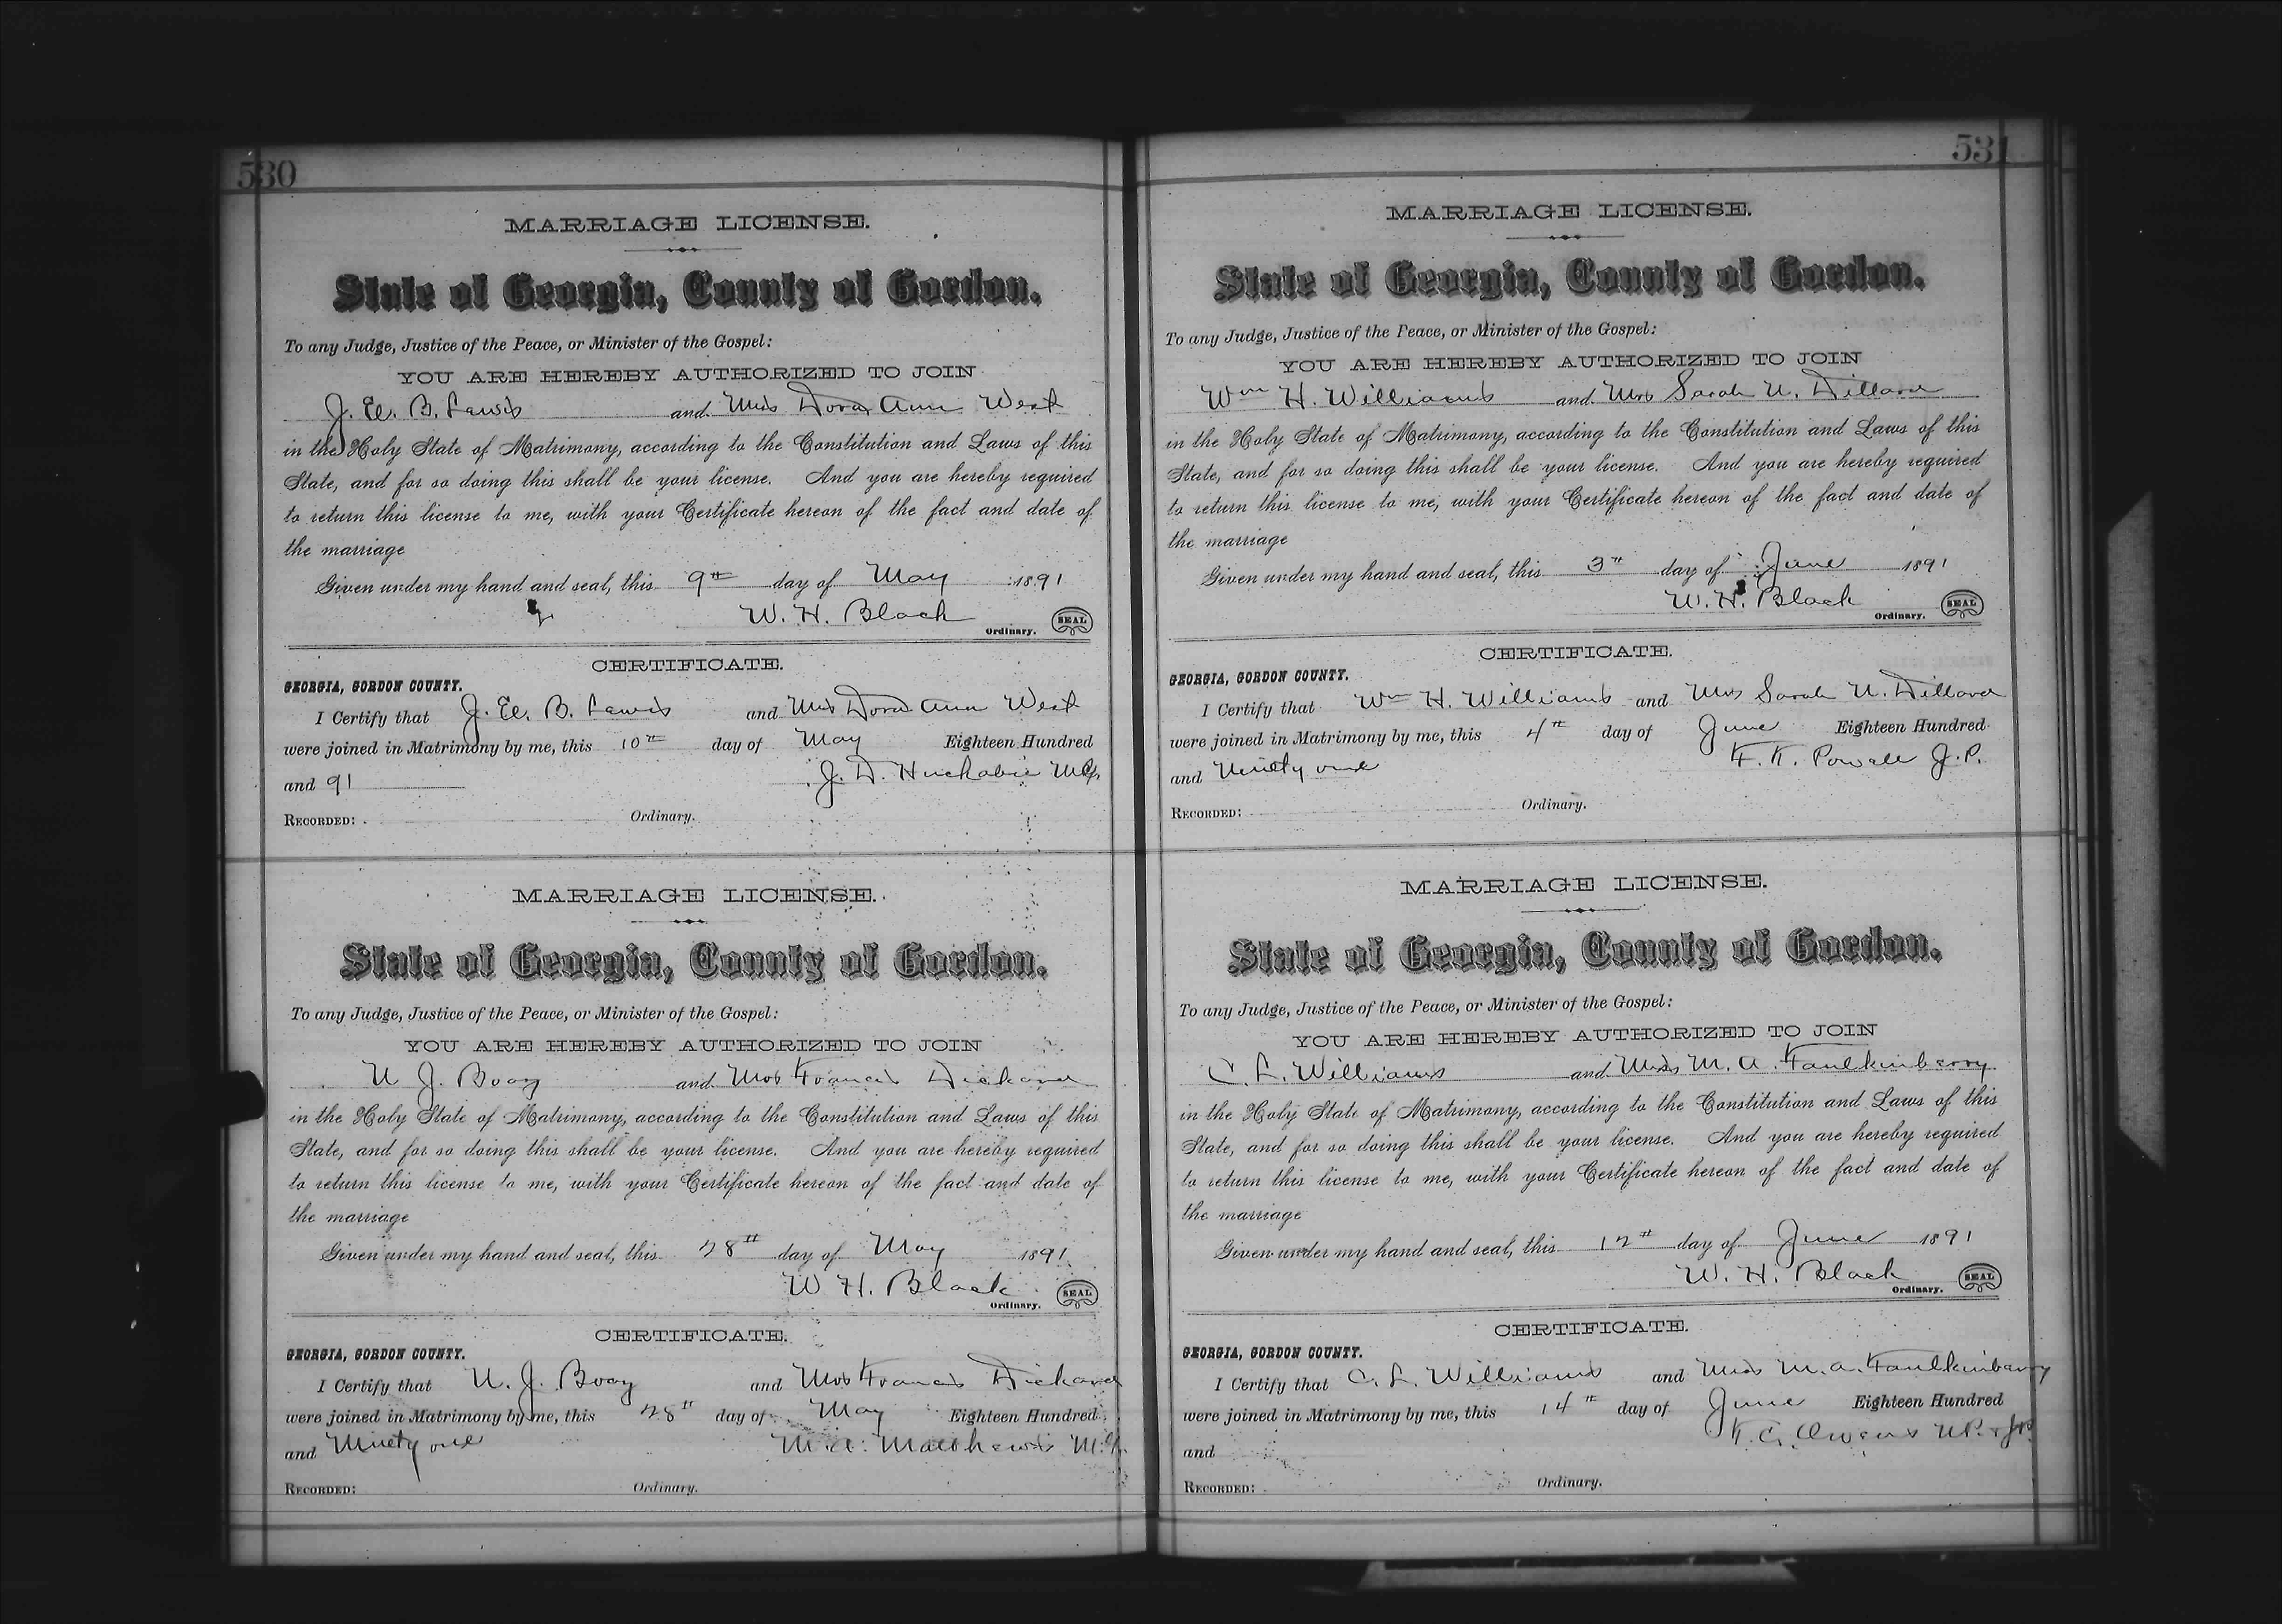 530
MARRIAGE LICENSE.
State of Georgia, County of Gordon.
To any Judge, Justice of the Peace, or Minister of the Gospel:
YOU ARE HEREBY AUTHORIZED TO JOIN
J. W. B. Lewis and Miss Dora Ann West
in the Holy State of Matrimony, according to the Constitution and Laws of this
State, and for so doing this shall be your license. And you are hereby required
to return this license to me, with your Certificate hereon of the fact and date of
the marriage
Given under my hand and seal, this 9th day of May 1891
W. H. Black
Ordinary. SEAL
CERTIFICATE.
GEORGIA, GORDON COUNTY.
I Certify that J. W. B. Lewis and Miss Dora Ann West
were joined in Matrimony by me, this 10th day of May Eighteen Hundred
and 91 J. D. Huckabie M.G.
RECORDED: Ordinary.
MARRIAGE LICENSE.
State of Georgia, County of Gordon.
To any Judge, Justice of the Peace, or Minister of the Gospel:
YOU ARE HEREBY AUTHORIZED TO JOIN
N J. and Mrs Francis
in the Holy State of Matrimony, according to the Constitution and Laws of this
State, and for so doing this shall be your license. And you are hereby required
to return this license to me, with your Certificate hereon of the fact and date of
the marriage
Given under my hand and seal, this 28th day of May 1891
W H. Black
Ordinary. SEAL
CERTIFICATE.
GEORGIA, GORDON COUNTY.
I Certify that N. J. and Mrs Francis
were joined in Matrimony by me, this 28th day of May Eighteen Hundred
and Ninety one M. A. Matthews M.G.
RECORDED: Ordinary.
531
MARRIAGE LICENSE.
State of Georgia, County of Gordon.
To any Judge, Justice of the Peace, or Minister of the Gospel:
YOU ARE HEREBY AUTHORIZED TO JOIN
Wm H. Williams and Mrs Sarah N. Dillard
in the Holy State of Matrimony, according to the Constitution and Laws of this
State, and for so doing this shall be your license. And you are hereby required
to return this license to me, with your Certificate hereon of the fact and date of
the marriage
Given under my hand and seal, this 3rd day of June 1891
W. H. Black
Ordinary. SEAL
CERTIFICATE.
GEORGIA, GORDON COUNTY.
I Certify that Wm H. Williams and Mrs Sarah N. Dillard
were joined in Matrimony by me, this 4th day of June Eighteen Hundred
and Ninety one Powell J.P.
RECORDED: Ordinary.
MARRIAGE LICENSE.
State of Georgia, County of Gordon.
To any Judge, Justice of the Peace, or Minister of the Gospel:
YOU ARE HEREBY AUTHORIZED TO JOIN
C. L. Williams and Miss M. A. Faulkinberry
in the Holy State of Matrimony, according to the Constitution and Laws of this
State, and for so doing this shall be your license. And you are hereby required
to return this license to me, with your Certificate hereon of the fact and date of
the marriage
Given under my hand and seal, this 12th day of June 1891
W. H. Black
Ordinary. SEAL
CERTIFICATE.
GEORGIA, GORDON COUNTY.
I Certify that C. L. Williams and Miss M. A. Faulkinberry
were joined in Matrimony by me, this 14th day of June Eighteen Hundred
and Owens
RECORDED: Ordinary.